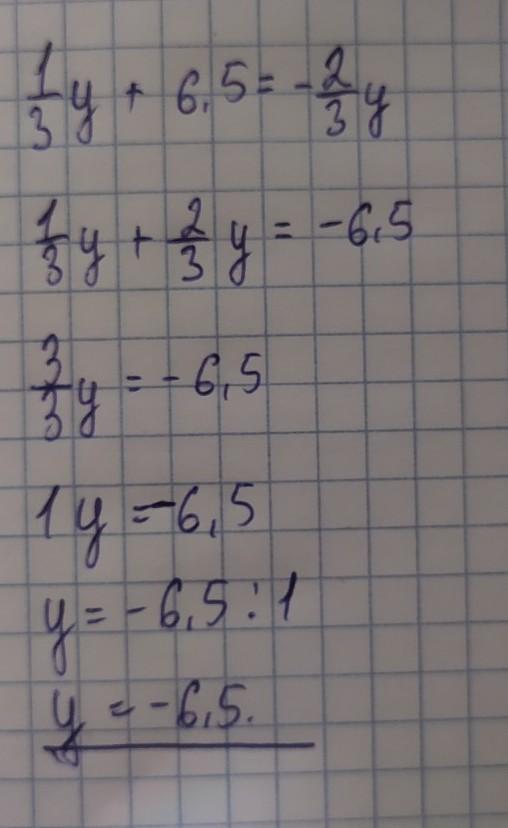 1/3 y + 6,5 = -2/3 y
1/3 y + 2/3 y = -6,5
3/3 y = -6,5
1y = -6,5
y = -6,5 : 1
y = -6,5.